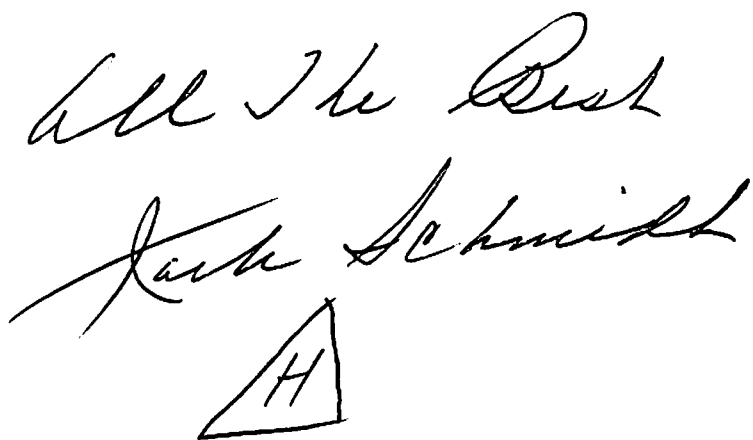 All The Best
Jack Schmidt
H